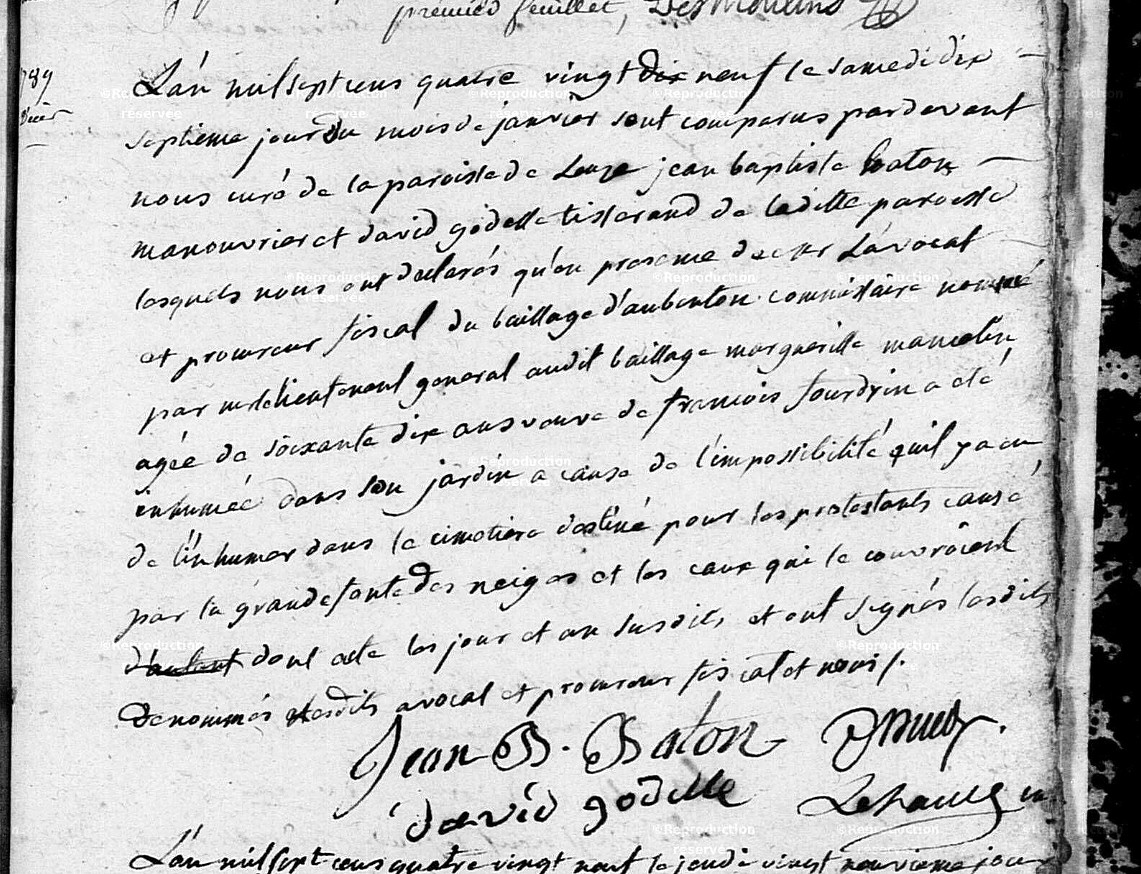 premier feuillet, Desmoulins
1789
L'an mil sept cens quatre vingt dix neuf le samedi dix
septieme jour du mois de janvier sont comparus pardevant
nous curé de la paroisse de Leuze jean baptiste baton
manouvrier et david godelle tisserand de ladille paroisse
lesquels nous ont declarés qu'en presence de L'avocat
et procureur fiscal du baillage d'aubenton commissaire nommé
par mr le lieutenant general audit baillage margueritte mancelin
agée de soixante dix ans veuve de françois fourdrin a eté
inhumée dans son jardin a cause de l'impossibilité quil y a eu
de l'inhumer dans le cimetiere destiné pour les protestants causé
par la grande fonte des neiges et les eaux qui le couvroient
dont acte les jour et an susdits et ont signés lesdits
denommés lesdits avocat et procureur fiscal et nous ./.
Jean B. Baton
david godelle
L'an mil sept cens quatre vingt neuf le jeudi vingt neuvieme jour